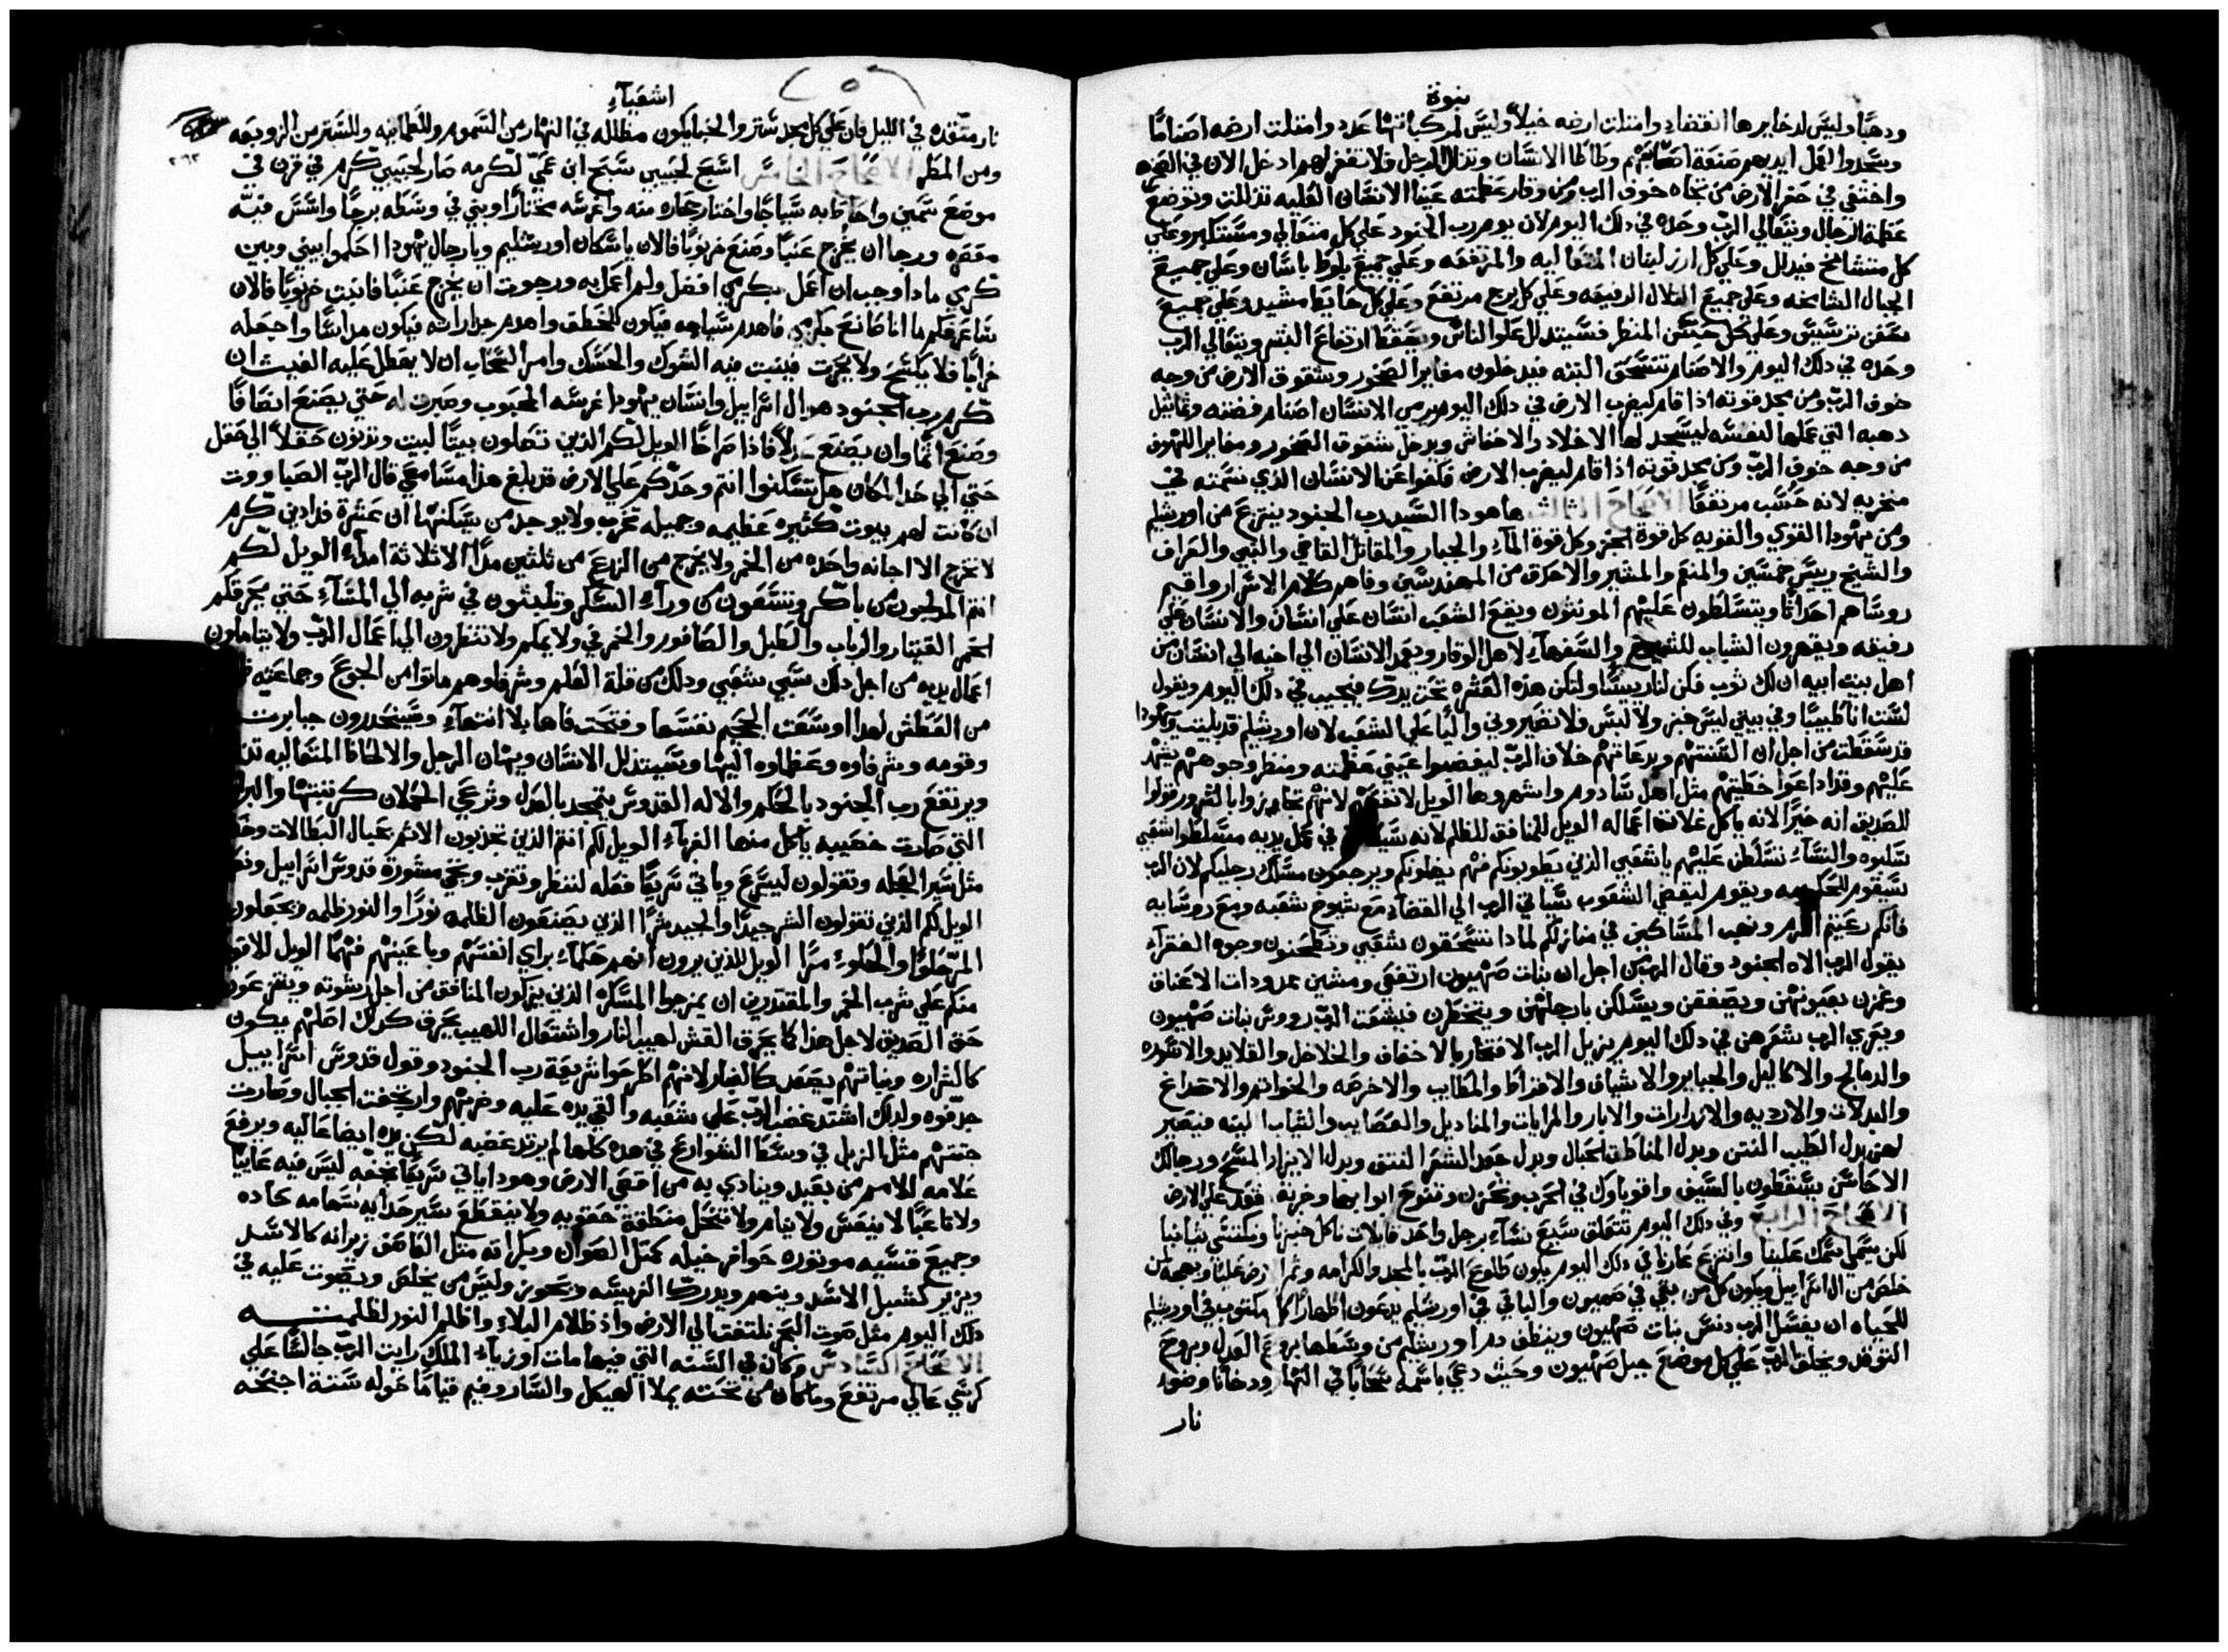 نبوة
ودهبًا وليس لدخايرها انقضاء وامتلت ارضه خيلاً وليس لمركباتها عدد وامتلت ارضه اصنامًا
وسجدوا لعمل ايديهم صنعة اصابعهم وطاطا الانسان وتذلل الرجل فلا تغفر لهم ادخل الان في الصخره
واختفى في حفر الارض من تجاه خوف الرب ومن وقار عظمته عينا الانسان العليه تذللت وتوضع
عظمة الرجال ويتعالي الرب وحده في دلك اليوم لان يوم رب الجنود علي كل متعالي ومستكبر وعلي
كل متشامخ فيدلل وعلي كل ارز لبنان المتعاليه والمرتفعه وعلي جميع بلوط باسان وعلي جميع
الجبال الشامخه وعلي جميع التلال الرفيعه وعلي كل برج مرتفع وعلي كل حايط مشيد وعلي جميع
سفن ترسيس وعلي كل حسن المنظر فسيتدلل علو الناس ويسقط ارتفاع البشر ويتعالي الرب
وحده في دلك اليوم والاصنام تنسحق البته فيدخلون مغاير الصخور وشقوق الارض من وجه
خوف الرب ومن مجد قوته اذا قام ليضرب الارض في دلك اليوم يرمي الانسان اصنام فضته وتماثيل
دهبه التي عملها لنفسه ليسجد لها الاخلاد والاخفاش ويدخل شقوق الصخور ومغاير الكهوف
من وجه خوف الرب ومن مجد قوته اذا قام ليضرب الارض فكفوا عن الانسان الذي نسمته في
منخريه لانه حسب مرتفعًا الاصحاح الثالث ها هودا السيد رب الجنود ينتزع من اورشليم
ومن يهودا القوي والقويه كل قوة الخبز وكل قوة الماء والجبار والمقاتل القاضي والنبي والعراف
والشيخ رييس خمسين والمنعم والمشير والاحدق من المهندسين وفاهم كلام الاسرار واقيم
روساهم احداثًا ويتسلطون عليهم المونثون ويقع الشعب انسان علي انسان والانسان علي
رفيقه ويقهرون الشباب للشيوخ والسفهاء لاهل الوقار ويعمد الانسان الي اخيه الي انسان من
اهل بيت ابيه ان لك ثوب فكن لنا رييسًا ولتكن هذه العثره تحت يدك فيجيب في دلك اليوم ويقول
لست انا طبيبًا وفي بيتي ليس خبز ولا لبس فلا تصيروني واليًا علي الشعب لان اورشليم قد بليت ويهودا
قد سقطت من اجل ان السنتهم وبدعاتهم خلاف الرب ليغضبوا عيني عظمته ومنظر وجوههم يشهد
عليهم وقد اداعوا خطيتهم مثل اهل سادوم واشهروها الويل لانفسهم لانهم تجازوا بالشرور قولوا
للصديق انه خيرًا لانه ياكل غلات اعماله الويل للمنافق للظلم لانه في عمل يديه متسلطوا شعبي
سلبوه والنساء تسلطن عليهم يا شعبي الذين يطوبونكم فهم يضلونكم ويرجعون مسالك رجليكم لان الرب
سيقوم للحكومه ويقوم ليقضي الشعوب سياتي الرب الي القضاء مع شيوخ شعبه ومع روسايه
فانكم رعيتم الكرم ونهب المساكين في منازلكم لمادا تسحقون شعبي وتطحنون وجوه الفقراء
يقول الرب الاه الجنود وقال الرب من اجل ان بنات صهيون ارتفعن ومشين بمدودات الاعناق
وغمزن بعيونهن ويصفقن ويسلكن بارجلهن ويتخطرن فيشعث الرب رووس بنات صهيون
ويعري الرب شعرهن في دلك اليوم يزيل الرب الافتخار بالاخفاف والخلاخل والقلايد والاسوره
والدمالج والاكاليل والجباير والاشياف والاقراط والمطايب والاخرصه والخواتم والاصداغ
والبدلات والارديه والازارات والابار والمرايات والمناديل والعصايب والثياب البته فيصير
لهن بدل الطيب النتن وبدل المناطق الحبال وبدل جعد الشعر النتق وبدل الايزار المسح ورجالك
الاحاسن يسقطون بالسيف واقوياوك في الحرب وتحزن وتنوح ابوابها وخربة تقعد علي الارض
الاصحاح الرابع وفي دلك اليوم تتعلق سبع نساء برجل واحد قايلات ناكل خبزنا ونكتسي بثيابنا
لكن يتسمى اسمك علينا وانتزع عارنا في دلك اليوم يكون طلوع الرب بالمجد والكرامه وثمر الارض عليا وبهجه لمن
خلص من ال اسراييل ويكون كل من بقي في صهيون والباقي في اورشليم يدعون اطهارًا كل مكتوب في اورشليم
للحياه ان يغسل الرب دنس بنات صهيون وينظف دم اورشليم من وسطها بروح العدل وبروح
التوقد ويخلق الرب علي كل موضع جبل صهيون وحيث دعي باسمه سحابًا في النهار ودخانًا وضوء
نار
اشعياء
نار متقده في الليل فان علي كل مجد ستر والخبا يكون مظلله في النهار من السموم وللطمانينه وللستر من الزوبعه
٢٦٢
ومن المطر الاصحاح الخامس اسبح لحبيبي تسبيح ابن عمي لكرمه صار لحبيبي كرم في قرن في
موضع سمين واحاط به سياجًا واختار حجاره منه واغرسه مختارًا وبني في وسطه برجًا واسس فيه
معصره ورجا ان يخرج عنبًا وصنع خرنوبًا فالان يا سكان اورشليم ويا رجال يهودا احكموا بيني وبين
كرمي مادا وجب ان اعمل بكرمي افضل ولم اعمل به ورجوت ان يخرج عنبًا فانبت خرنوبًا فالان
ساعرفكم ما انا صانع بكرمي فاهدم سياجه فيكون للخطف واهدم جداراته فيكون مداسًا واجعله
خرابًا فلا يكسح ولا يحرث فينبت فيه الشوك والحسك وامر السحاب ان لا يهطل عليه الغيث ان
كرم رب الجنود هو ال اسراييل وانسان يهودا غرسه المحبوب وصبرت له حتي يصنع انصافًا
وصنع اثمًا وان يصنع عدلاً فاذا صراخًا الويل لكم الذين تصلون بيتًا لبيت وتزنون حقلاً الي حقل
حتي الي حد المكان هل تسكنوا انتم وحدكم علي الارض قد بلغ هذا مسامعي قال الرب الصباووت
ان كانت لهم بيوت كثيره عظيمه وجميله تخرب ولا يوجد من يسكنها ان عشرة فدادين كرم
لا تخرج الا اجانه واحده من الخمر ولا يخرج من الزرع من ثلثين مدًا الا ثلاثة امداء الويل لكم
انتم المدلجون من باكر وتسعون من وراء السكر وتلبثون في شربه الي المساء حتي يحرقكم
الخمر القيثار والرباب والطبل والصافور والخمر في ولايمكم ولا تنظرون الي اعمال الرب ولا يتاملون
اعمال يديه من اجل دلك سبي شعبي ودلك من قلة العلم وشرفاوهم ماتوا من الجوع وجماعته
من العطش لهدا اوسعت الجحيم نفسها وفتحت فاها بلا انتهاء وسينحدرون جبابرته
وقومه وشرفاوه وعظماوه اليها وسيتدلل الانسان ويهان الرجل والالحاظ المتعاليه
ويرتفع رب الجنود بالحكم والاله القدوس يتمجد بالعدل وترعي الحملان كرتبتها والبر
التي صارت خصيبه ياكل منها الغرباء الويل لكم انتم الذين تجذبون الاثم بحبال البطالات
مثل سير العجله وتقولون ليسرع وياتي سريعًا فعله لننظر وتقرب وتجي مشورة قدوس اسراييل
الويل لكم الذين تقولون الشر جيدًا والجيد شرًا الذين يصنعون الظلمه نورًا والنور ظلمه وتجعلون
المر حلوًا والحلو مرًا الويل للذين يرون انهم حكماء براي انفسهم وباعينهم فهمًا الويل للاقويا
منكم علي شرب الخمر والمقتدرين ان يمزجوا المسكر الذين يزكون المنافق من اجل رشوته وينتزعون
حق الصديق لاجل هذا كما يحرق القش لهيب النار واشتعال اللهيب يحرق كدلك اصلهم يكون
كالشراره ونباتهم يصعد كالغبار لانهم اطرحوا شريعة رب الجنود وقول قدوس اسراييل
جدفوه ولدلك اشتد غضب الرب علي شعبه والقي يده عليه وضربهم وارتجفت الجبال وصارت
جثثهم مثل الزبل في وسط الشوارع في هده كلها لم يرتد غضبه لكن يده ايضا عاليه ويرفع
علامه للامم من بعيد وينادي به من اقصي الارض وهودا ياتي سريعًا بخفه ليس فيه عاييًا
ولا تاعبًا لا ينعس ولا ينام ولا تنحل منطقة حقويه ولا ينقطع سير حدايه سهامه حاده
وجميع قسيه موتوره حوافر خيله كمثل الصوان وبكراته مثل العاصف زيرانه كالاسد
ويزير كشبل الاسد وينهم ويدرك الفريسه ويحوز وليس من يخلص ويصوت عليه في
دلك اليوم مثل صوت البحر نلتفت الي الارض واذ ظلام البلاء واظلم النور لظلمته
الاصحاح السادس وكان في السنه التي فيها مات اوزياء الملك رايت الرب جالسًا علي
كرسي عالي مرتفع وما كان من تحته يملا الهيكل والساروفيم قيامًا حوله ستة اجنحه